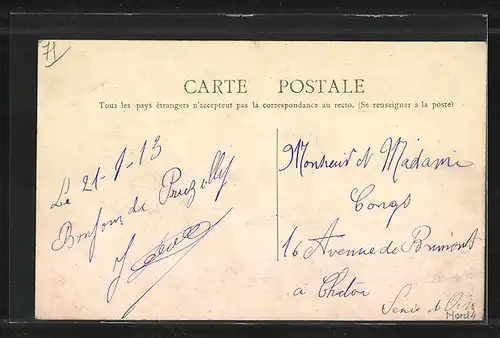 71
CARTE POSTALE
Tous les pays étrangers n'acceptent pas la correspondance au recto. (Se renseigner à la poste)
Le 21-9-13
Bonjour de Pruzilly
Monsieur et Madame
16 Avenue de
à Chatou
Seine et Oise
Nord4